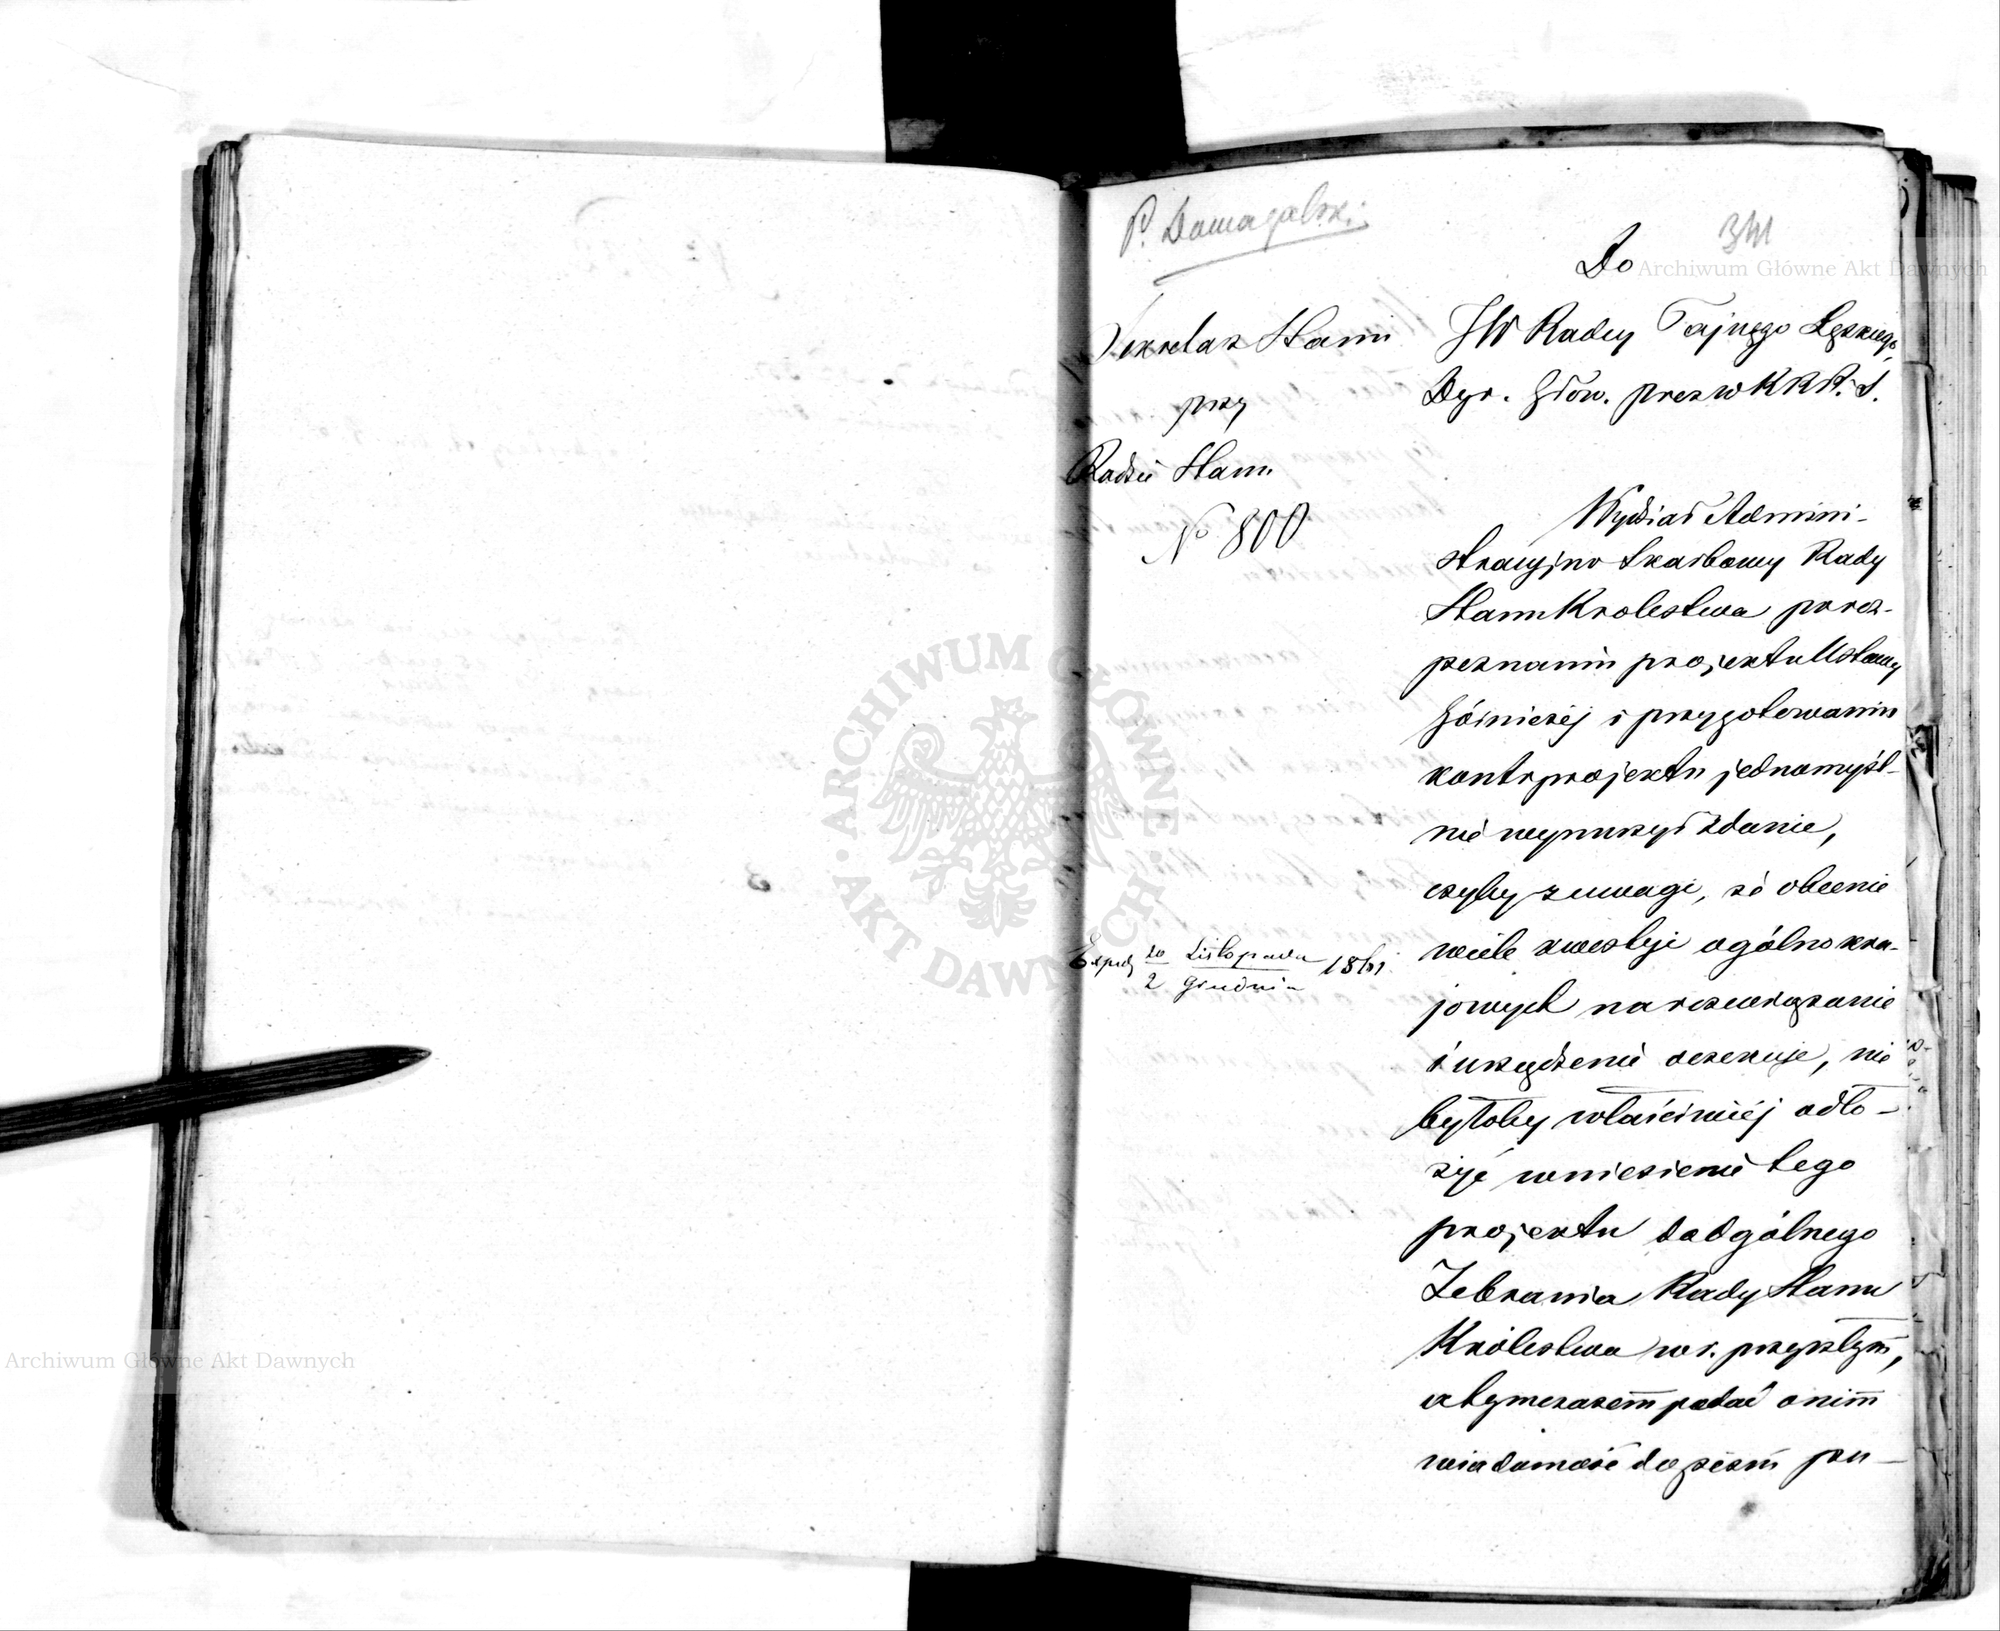 P. Domagalski
341
Sekretarz Stanu
przy
Radzie Stanu
No 800
Exped 20 Listopada / 2 Grudnia 1861
Do
JW Radcy Tajnego Łęskiego
Dyr. Głów. prez w K R P. i S.
Wydział Admini-
stracyjno Skarbowy Rady
Stanu Krolestwa po roz-
poznaniu projektu Ustawy
Górniczéj i przygotowaniu
kontrprojektu jednomyśl-
nie wynurzył zdanie,
czyby z uwagi, że obecnie
wiele kwestyi ogólno kra-
jowych na rozwiązanie
i urządzenie oczekuje, nie
byłoby właściwiéj odło-
żyć wniesienie tego
projektu do Ogólnego
Zebrania Rady Stanu
Królestwa w r. przyszłym,
a tymczasem podać o nim
wiadomość do pism pu-
Archiwum Główne Akt Dawnych
Archiwum Główne Akt Dawnych
ARCHIWUM GŁÓWNE AKT DAWNYCH